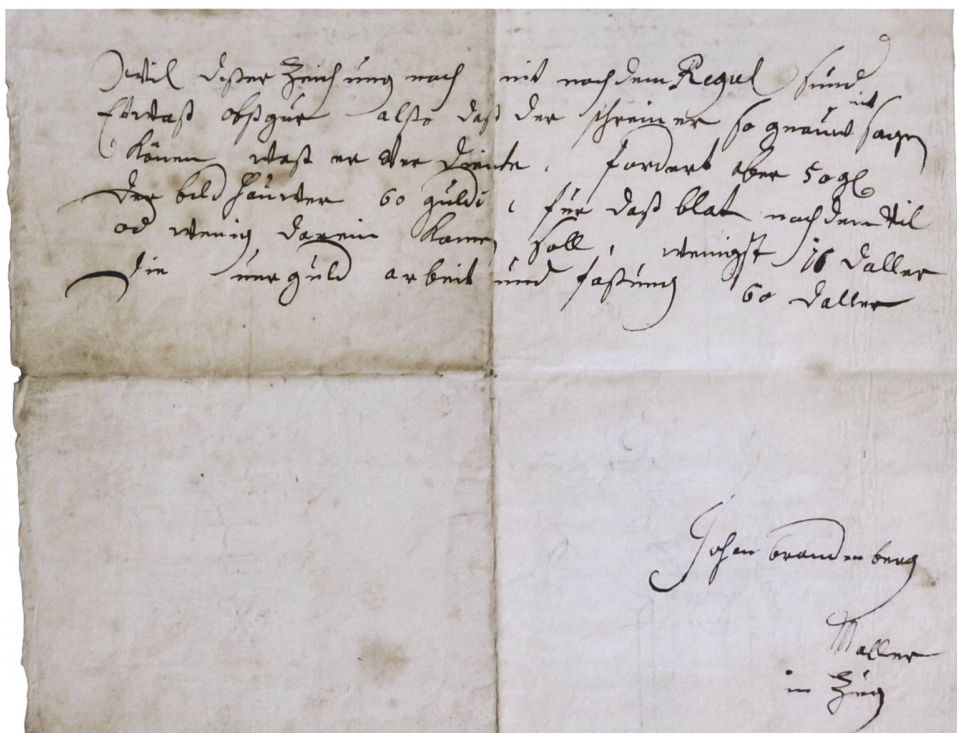 Wil disser Zeichnung nach nit nach dem Regul sund
Etwaß obsgur also daß der schreiner so genauw nit sagen
könen waß er ver diente. fordert aber 50 gl
der bild hauwer 60 guldi, für daß blat nach dem vil
od wenig darein komen soll, wenigst 16 daller
die ver guld arbeit und faßung 60 daller
Johan brandenberg
Maller
in Zug